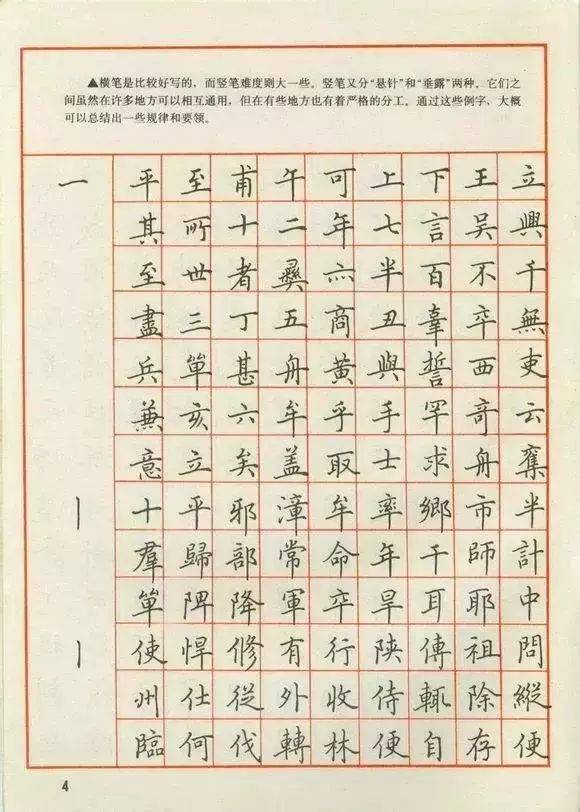 ▲横笔是比较好写的，而竖笔难度则大一些。竖笔又分“悬针”和“垂露”两种。它们之
间虽然在许多地方可以相互通用，但在有些地方也有着严格的分工。通过这些例字，大概
可以总结出一些规律和要领。
一 平至甫午可上下王立
其所十二年七言吴興
至世者彜六半百不千
盡三丁五商丑辜卒無
兵單甚舟黄與誓西吏
兼亥六牟乎手罕奇云
意立矣盖取士求舟奪
丨 十平邪漳牟率鄉市半
羣歸部常命年干師計
單陴降軍卒旱耳耶中
丨 使悍修有行陕傳祖問
州仕從外收侍輒除縱
臨何伐轉林便自存便
4